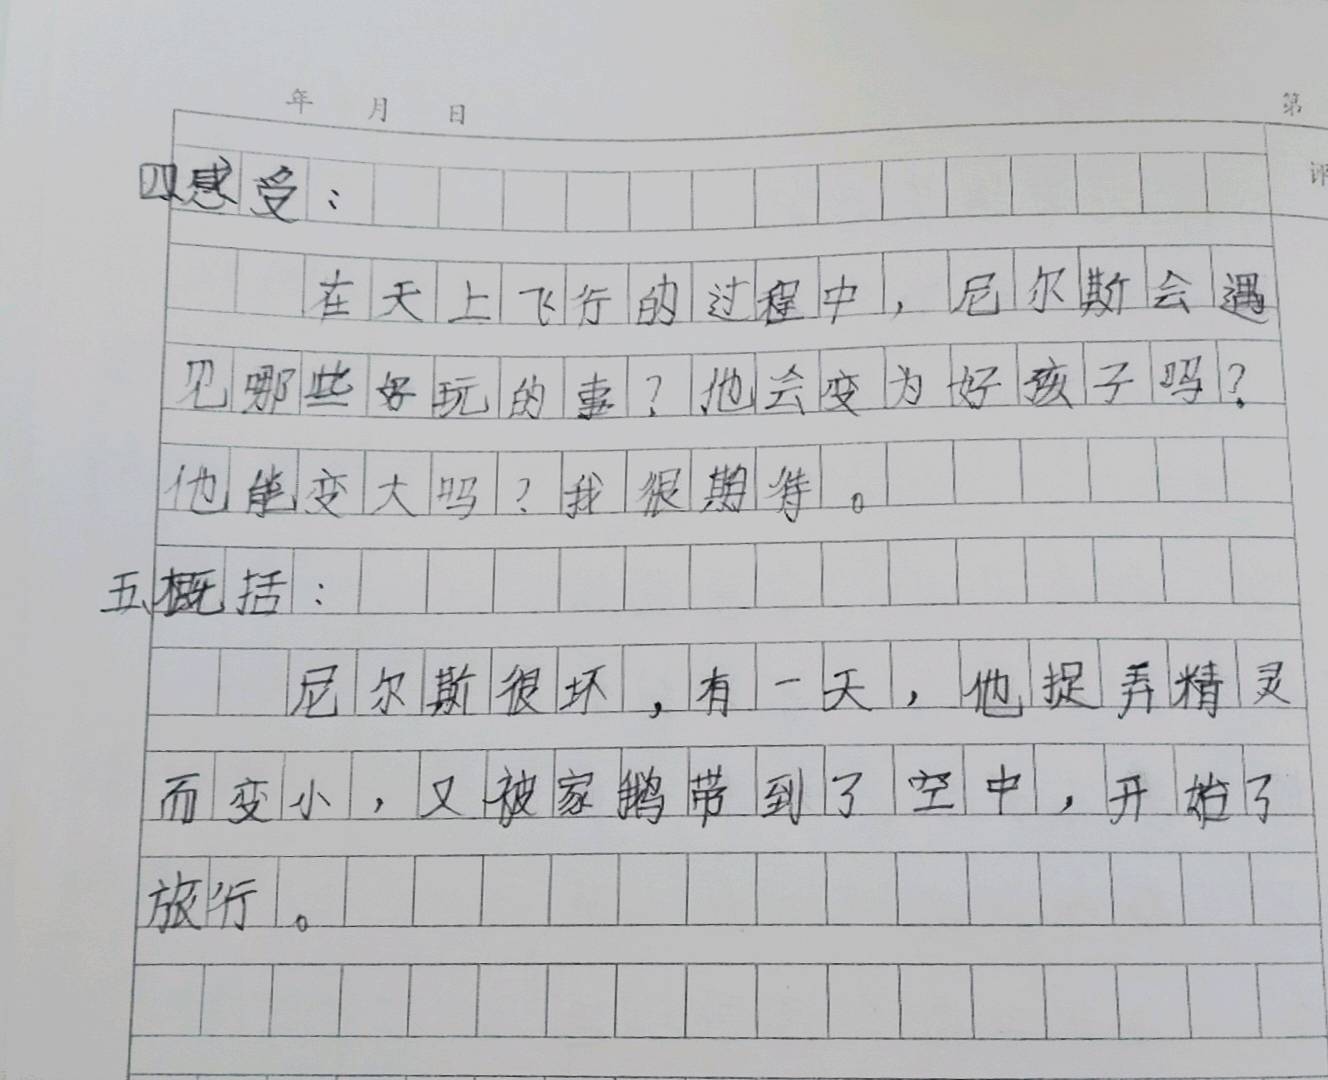 年 月 日
第
评
四、感受：
在天上飞行的过程中，尼尔斯会遇
见哪些好玩的事？他会变为好孩子吗？
他能变大吗？我很期待。
五、概括：
尼尔斯很坏，有一天，他捉弄精灵
而变小，又被家鹅带到了空中，开始了
旅行。